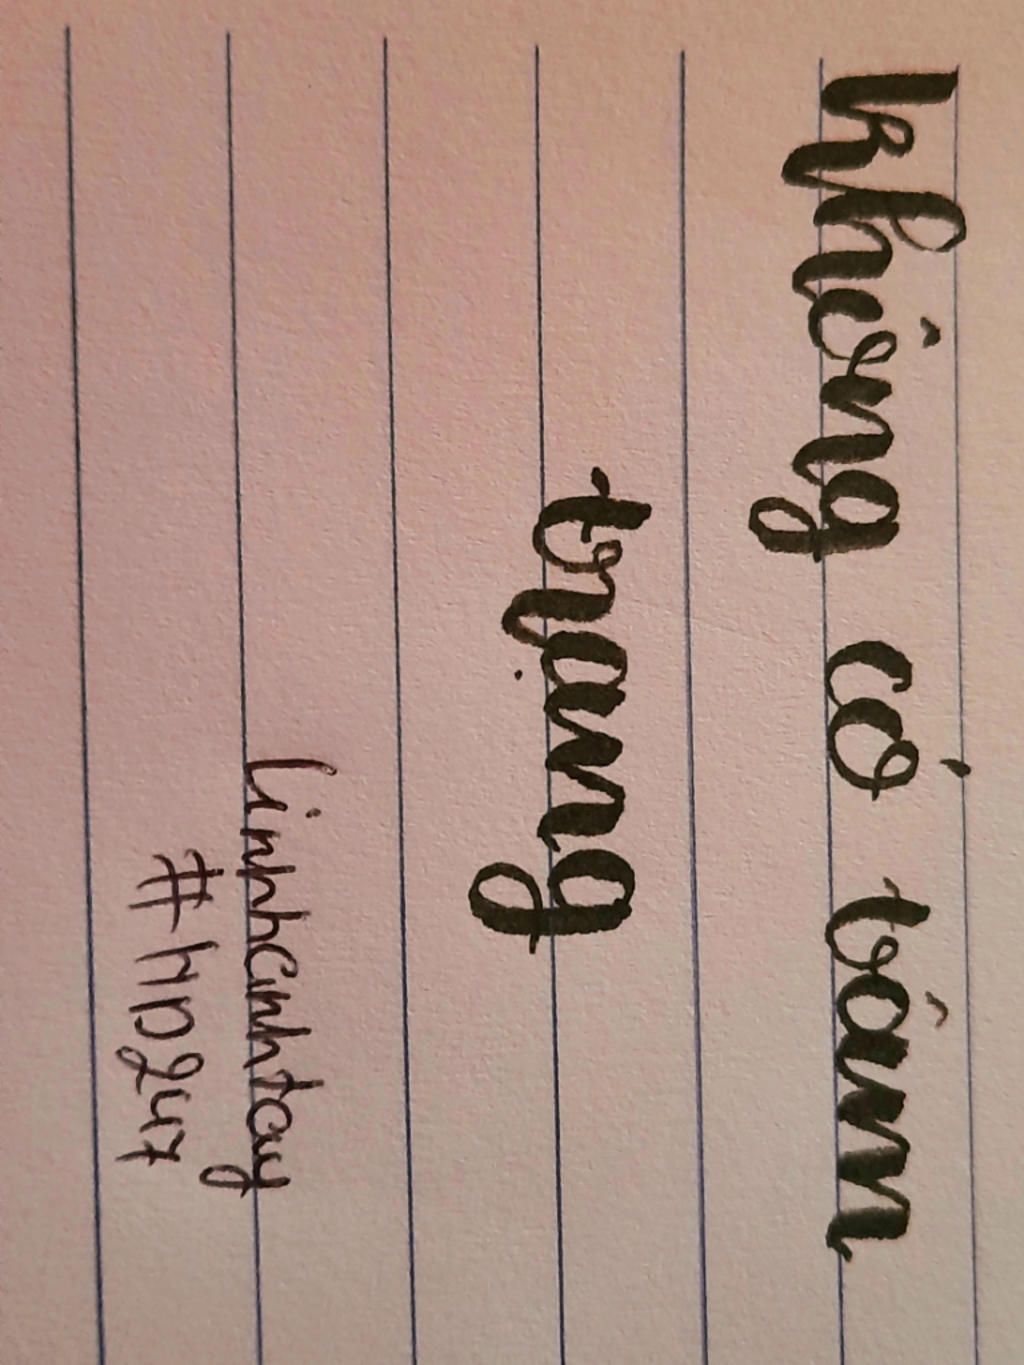 không có tâm
trạng
linhcinhtay
#HD247